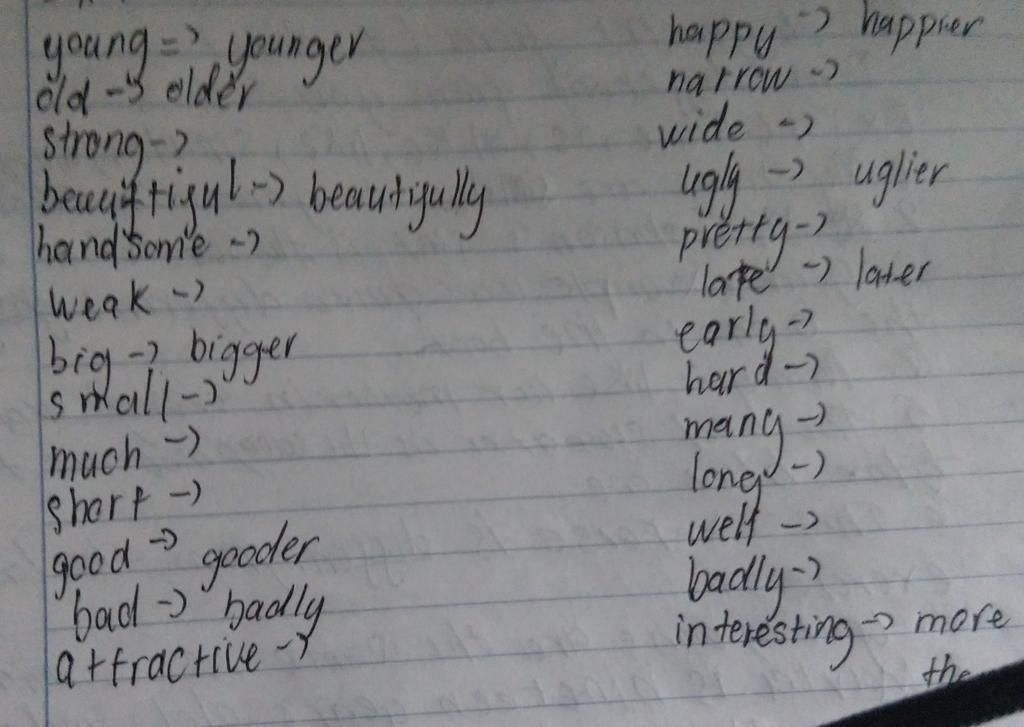 young => younger
old -> older
strong ->
beautiful -> beautifully
handsome ->
weak ->
big -> bigger
small ->
much ->
short ->
good -> gooder
bad -> badly
attractive ->
happy -> happier
narrow ->
wide ->
ugly -> uglier
pretty ->
late -> later
early ->
hard ->
many ->
long ->
well ->
badly ->
interesting -> more